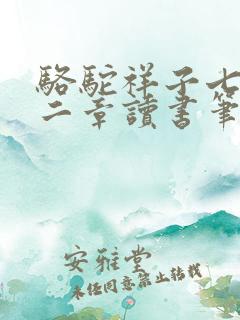 駱駝祥子七
二章讀書筆
安雅堂
未經同意禁止轉載